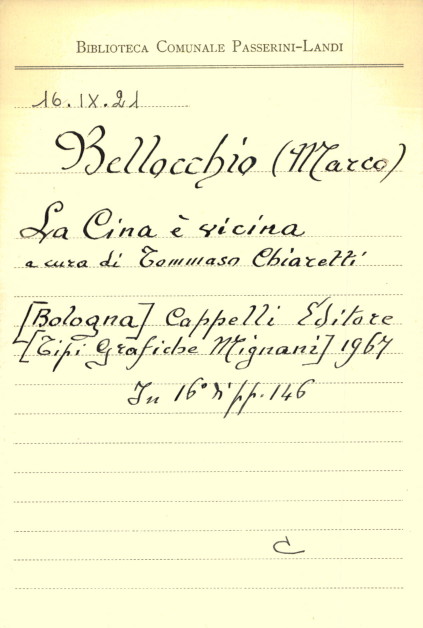 BIBLIOTECA COMUNALE PASSERINI-LANDI
16.IX.21
Bellocchio (Marco)
La Cina è vicina
a cura di Tommaso Chiaretti
[Bologna] Cappelli Editore
[Tipi Grafiche Mignani] 1967
In 16° di pp. 146
C